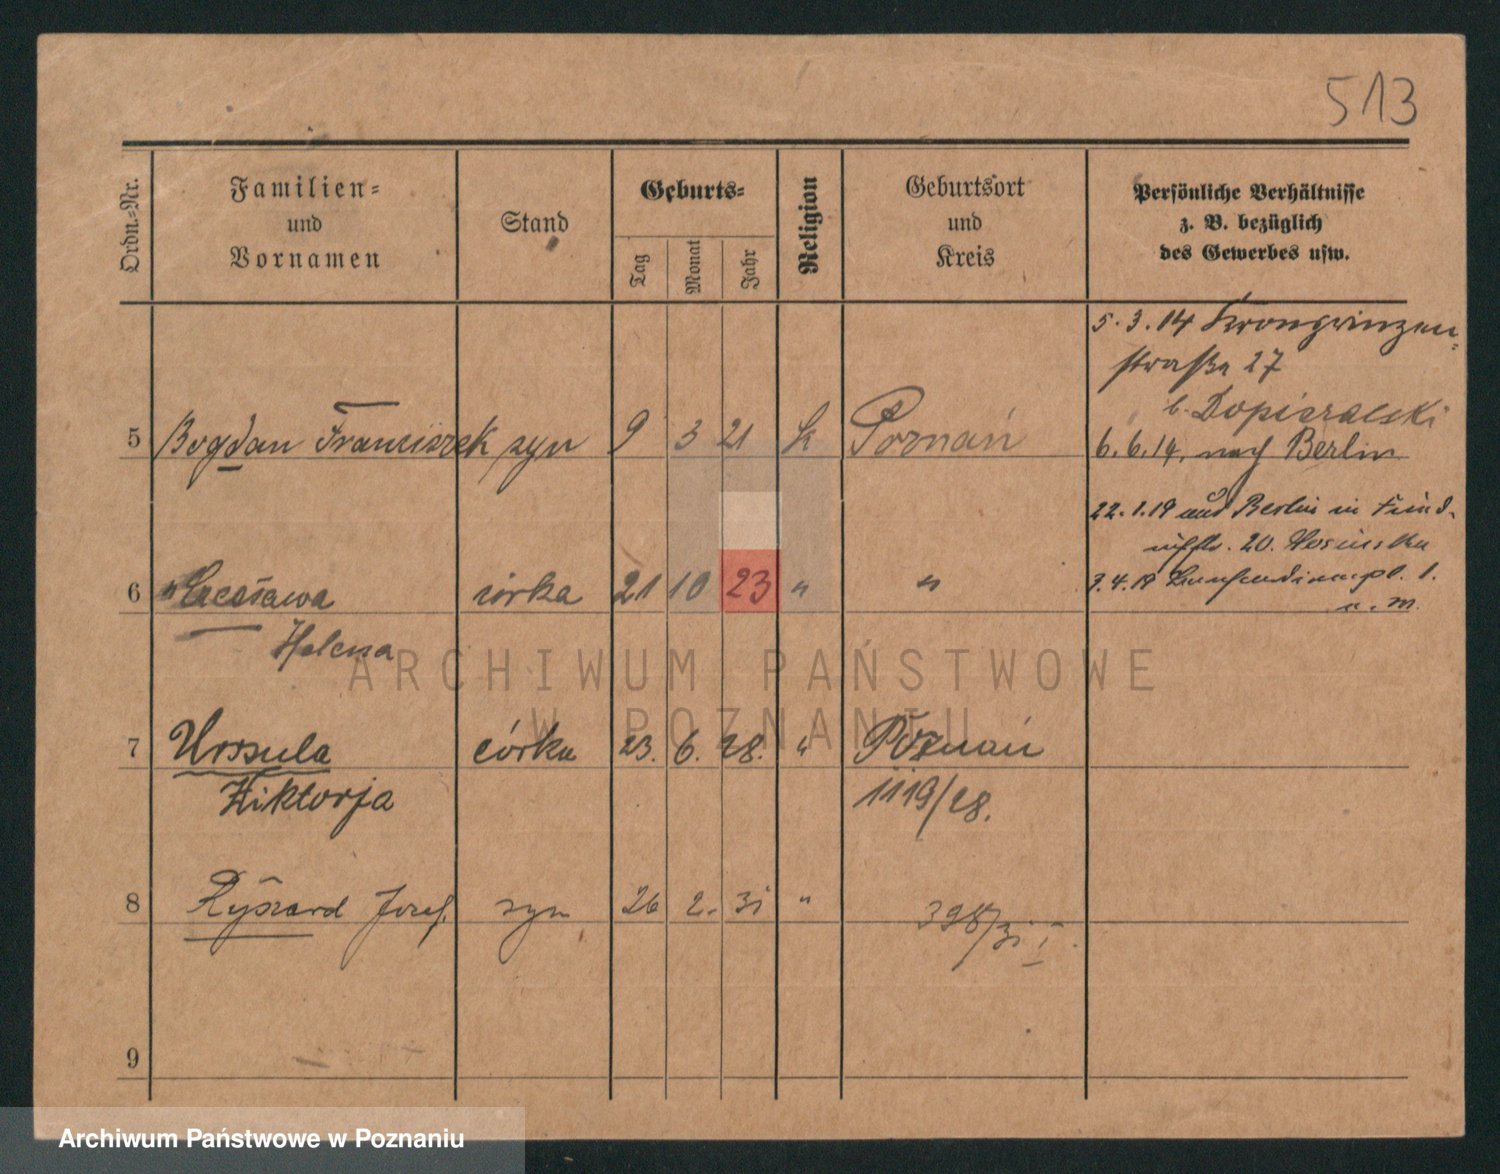 513
Ordn.=Nr.
Familien=
und
Vornamen
Stand
Geburts=
Tag
Monat
Jahr
Religion
Geburtsort
und
Kreis
Persönliche Verhältnisse
z. B. bezüglich
des Gewerbes usw.
5. 3. 14 Kronprinzen=
straße 27
b. Dopieralski
5 Bogdan Franciszek syn 9 3 21 k Poznań
6. 6. 14. nach Berlin
22. 1. 19 aus Berlin in
20.
6 " Czesława córka 21 10 23 " "
3. 4. 19 1.
Helena
ARCHIWUM PAŃSTWOWE
W POZNANIU
7 Urszula córka 23. 6. 28. " Poznań
Wiktorja 1119/28.
8 Ryszard Józef. syn 26 2. 31 "
398/31 I
9
Archiwum Państwowe w Poznaniu